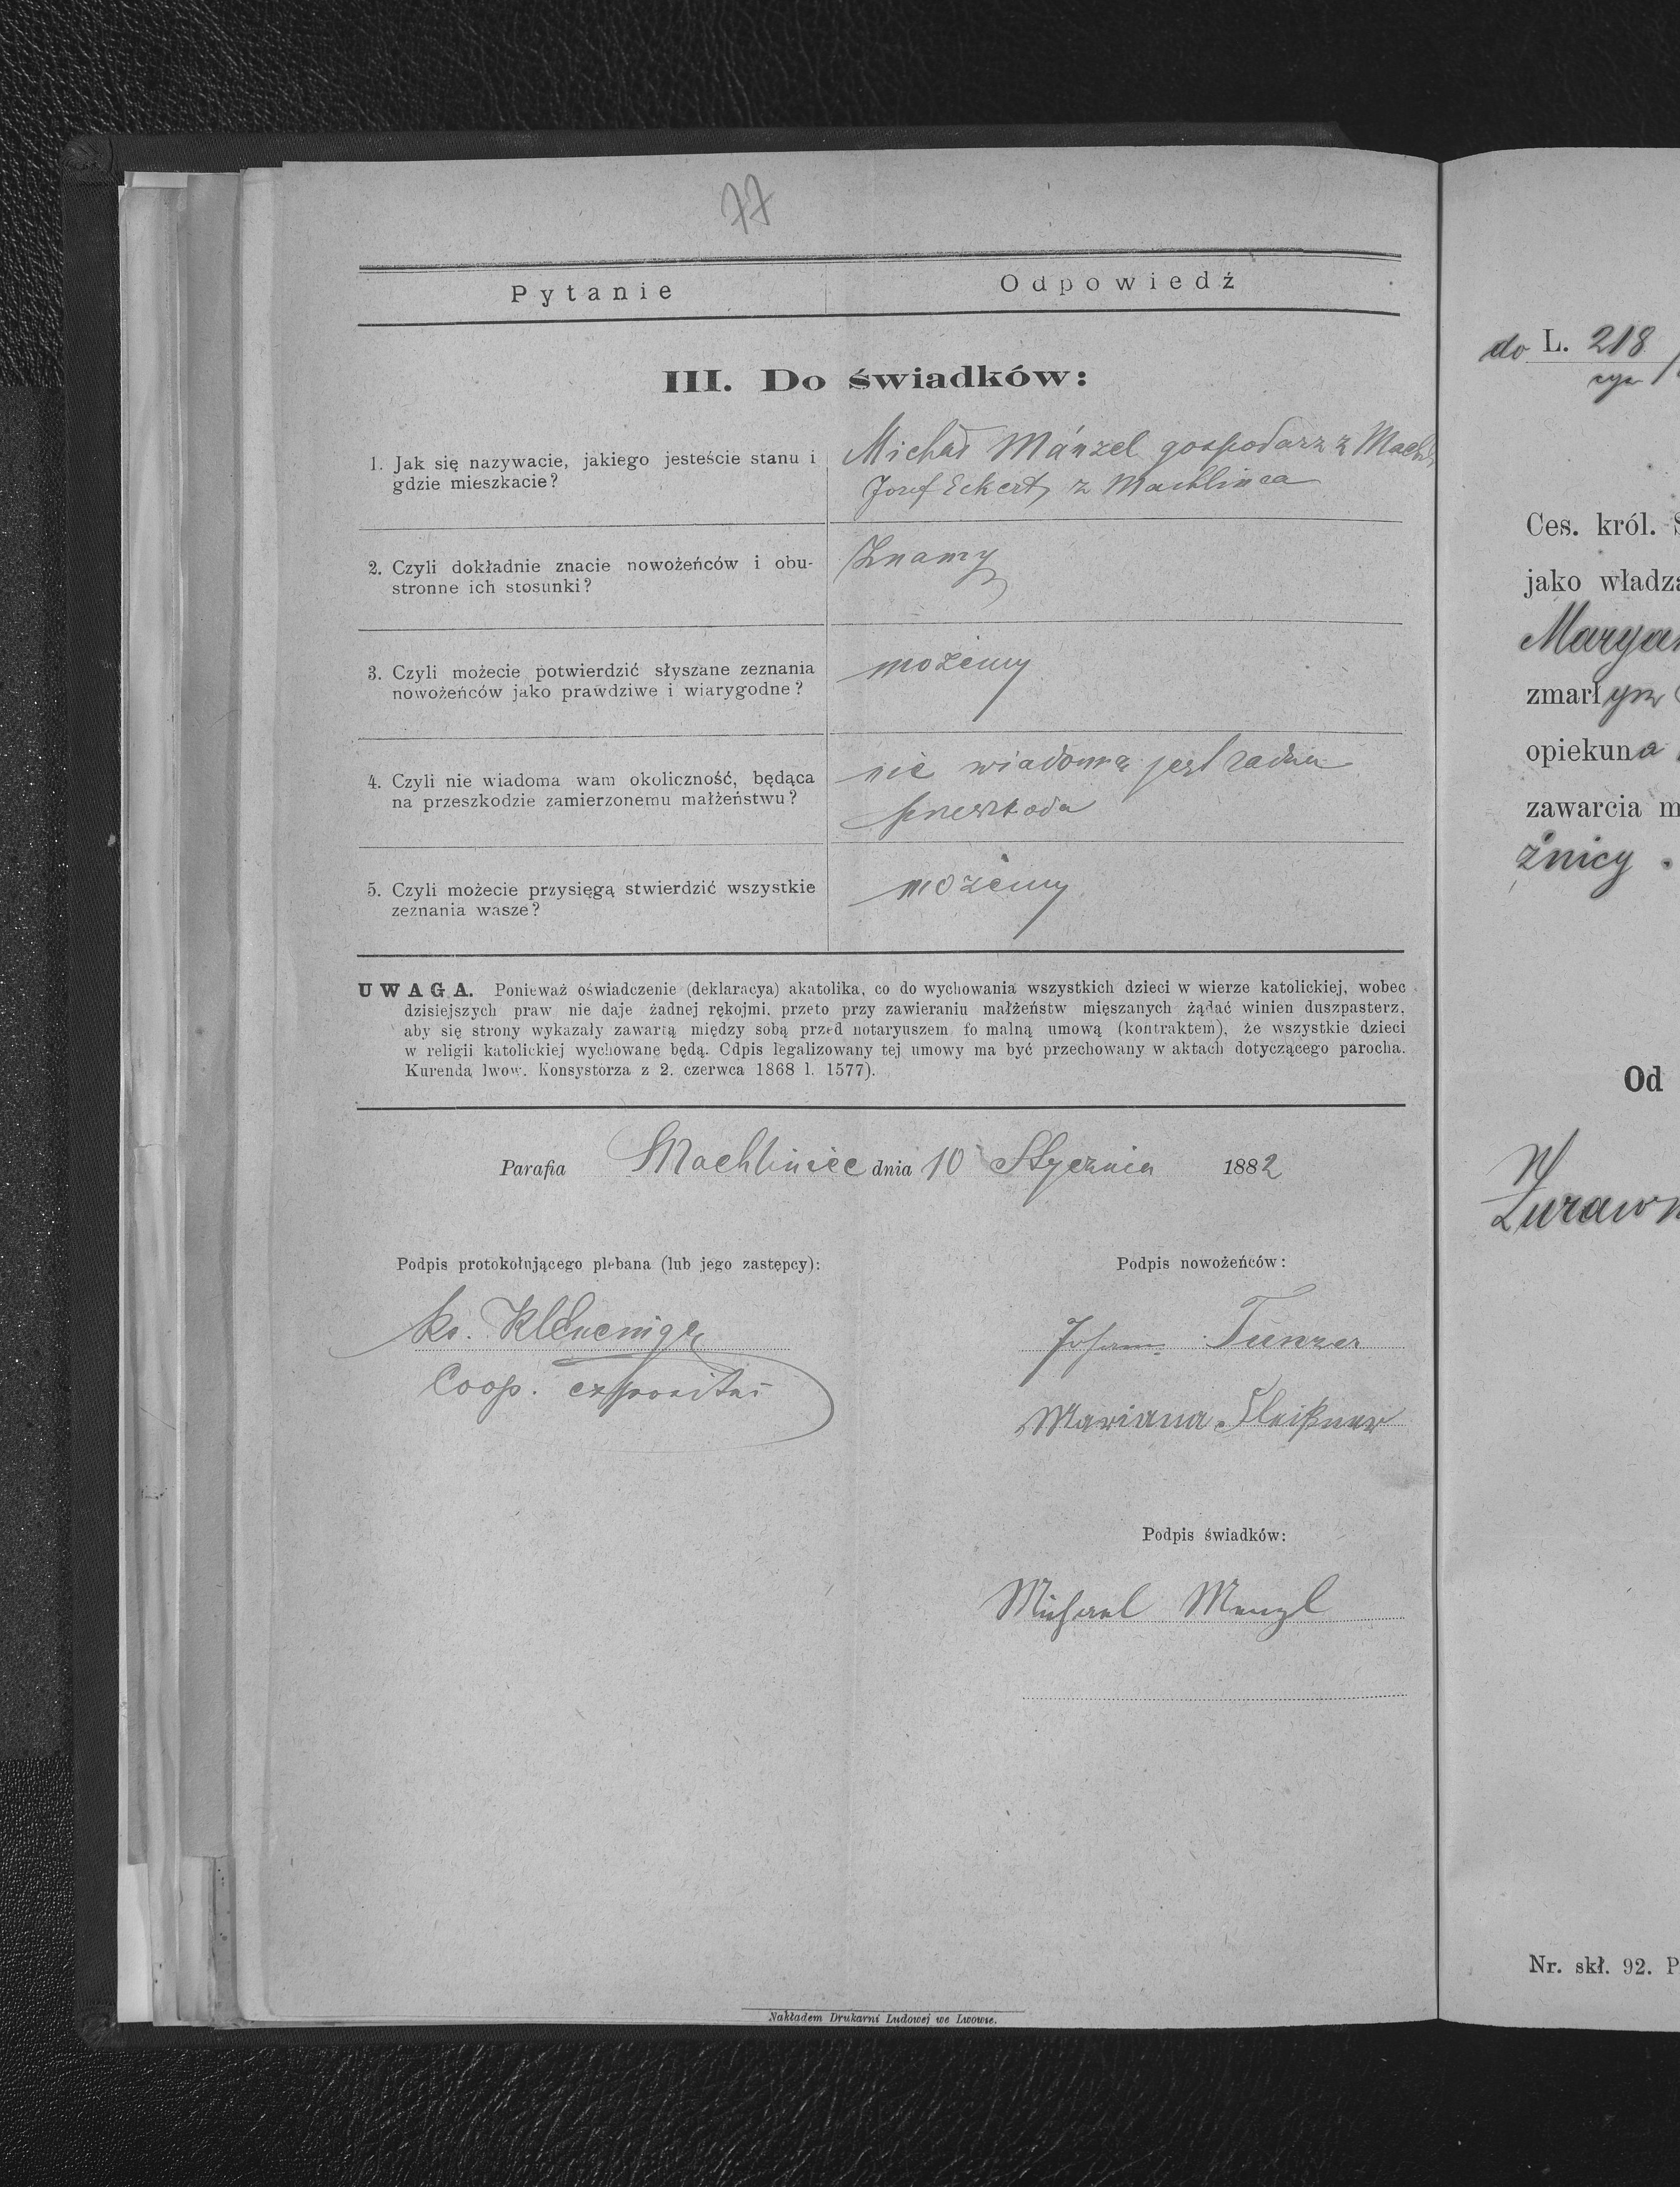 77
Pytanie
Odpowiedź
III. Do świadków:
1. Jak się nazywacie, jakiego jesteście stanu i
gdzie mieszkacie?
Michał Mänzel gospodarz z Machl
Josef Eckert z Machlinca
2. Czyli dokładnie znacie nowożeńców i obu-
stronne ich stosunki?
Znamy
3. Czyli możecie potwierdzić słyszane zeznania
nowożeńców jako prawdziwe i wiarygodne?
możemy
4. Czyli nie wiadoma wam okoliczność, będąca
na przeszkodzie zamierzonemu małżeństwu?
nie wiadoma jest żadna
przeszkoda
5. Czyli możecie przysięgą stwierdzić wszystkie
zeznania wasze?
możemy
UWAGA. Ponieważ oświadczenie (deklaracya) akatolika, co do wychowania wszystkich dzieci w wierze katolickiej, wobec
dzisiejszych praw nie daje żadnej rękojmi, przeto przy zawieraniu małżeństw mięszanych żądać winien duszpasterz,
aby się strony wykazały zawartą między sobą przed notaryuszem fo malną umową (kontraktem), że wszystkie dzieci
w religii katolickiej wychowane będą. Odpis legalizowany tej umowy ma być przechowany w aktach dotyczącego parocha.
Kurenda lwow. Konsystorza z 2. czerwca 1868 l. 1577).
Parafia Machliniec dnia 10 Stycznia 1882
Podpis protokołującego plebana (lub jego zastępcy):
Ks.
Coop. expositus
Podpis nowożeńców:
Johann Tunzer
Mariana Fleißner
Podpis świadków:
Michael Menzl
Nakładem Drukarni Ludowej we Lwowie.
do L. 218
Ces. król. S
jako władza
Maryan
zmarłym
opiekuna
zawarcia m
żnicy.
Od
W
Żurawn
Nr. skł. 92. P